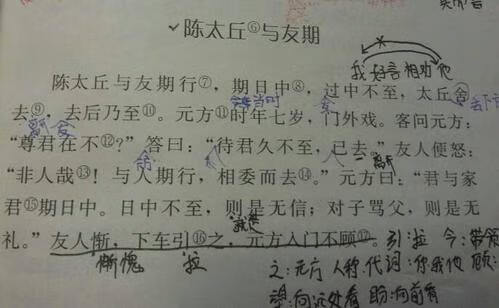 ✓陈太丘⑥与友期
我好言相助他
陈太丘与友期行⑦，期日中⑧，过中不至，太丘舍
去⑨，去后乃至⑩。元方⑪时年七岁，门外戏。客问元方：
“尊君在不⑫？”答曰：“待君久不至，已去。”友人便怒：
“非人哉⑬！与人期行，相委而去⑭。”元方曰：“君与家
君⑮期日中。日中不至，则是无信；对子骂父，则是无
礼。”友人惭，下车引⑯之，元方入门不顾⑰。引：拉 今：带领
惭愧 拉 之：元方 人称代词：你我他 顾：
望：向远处看 盼：向前看